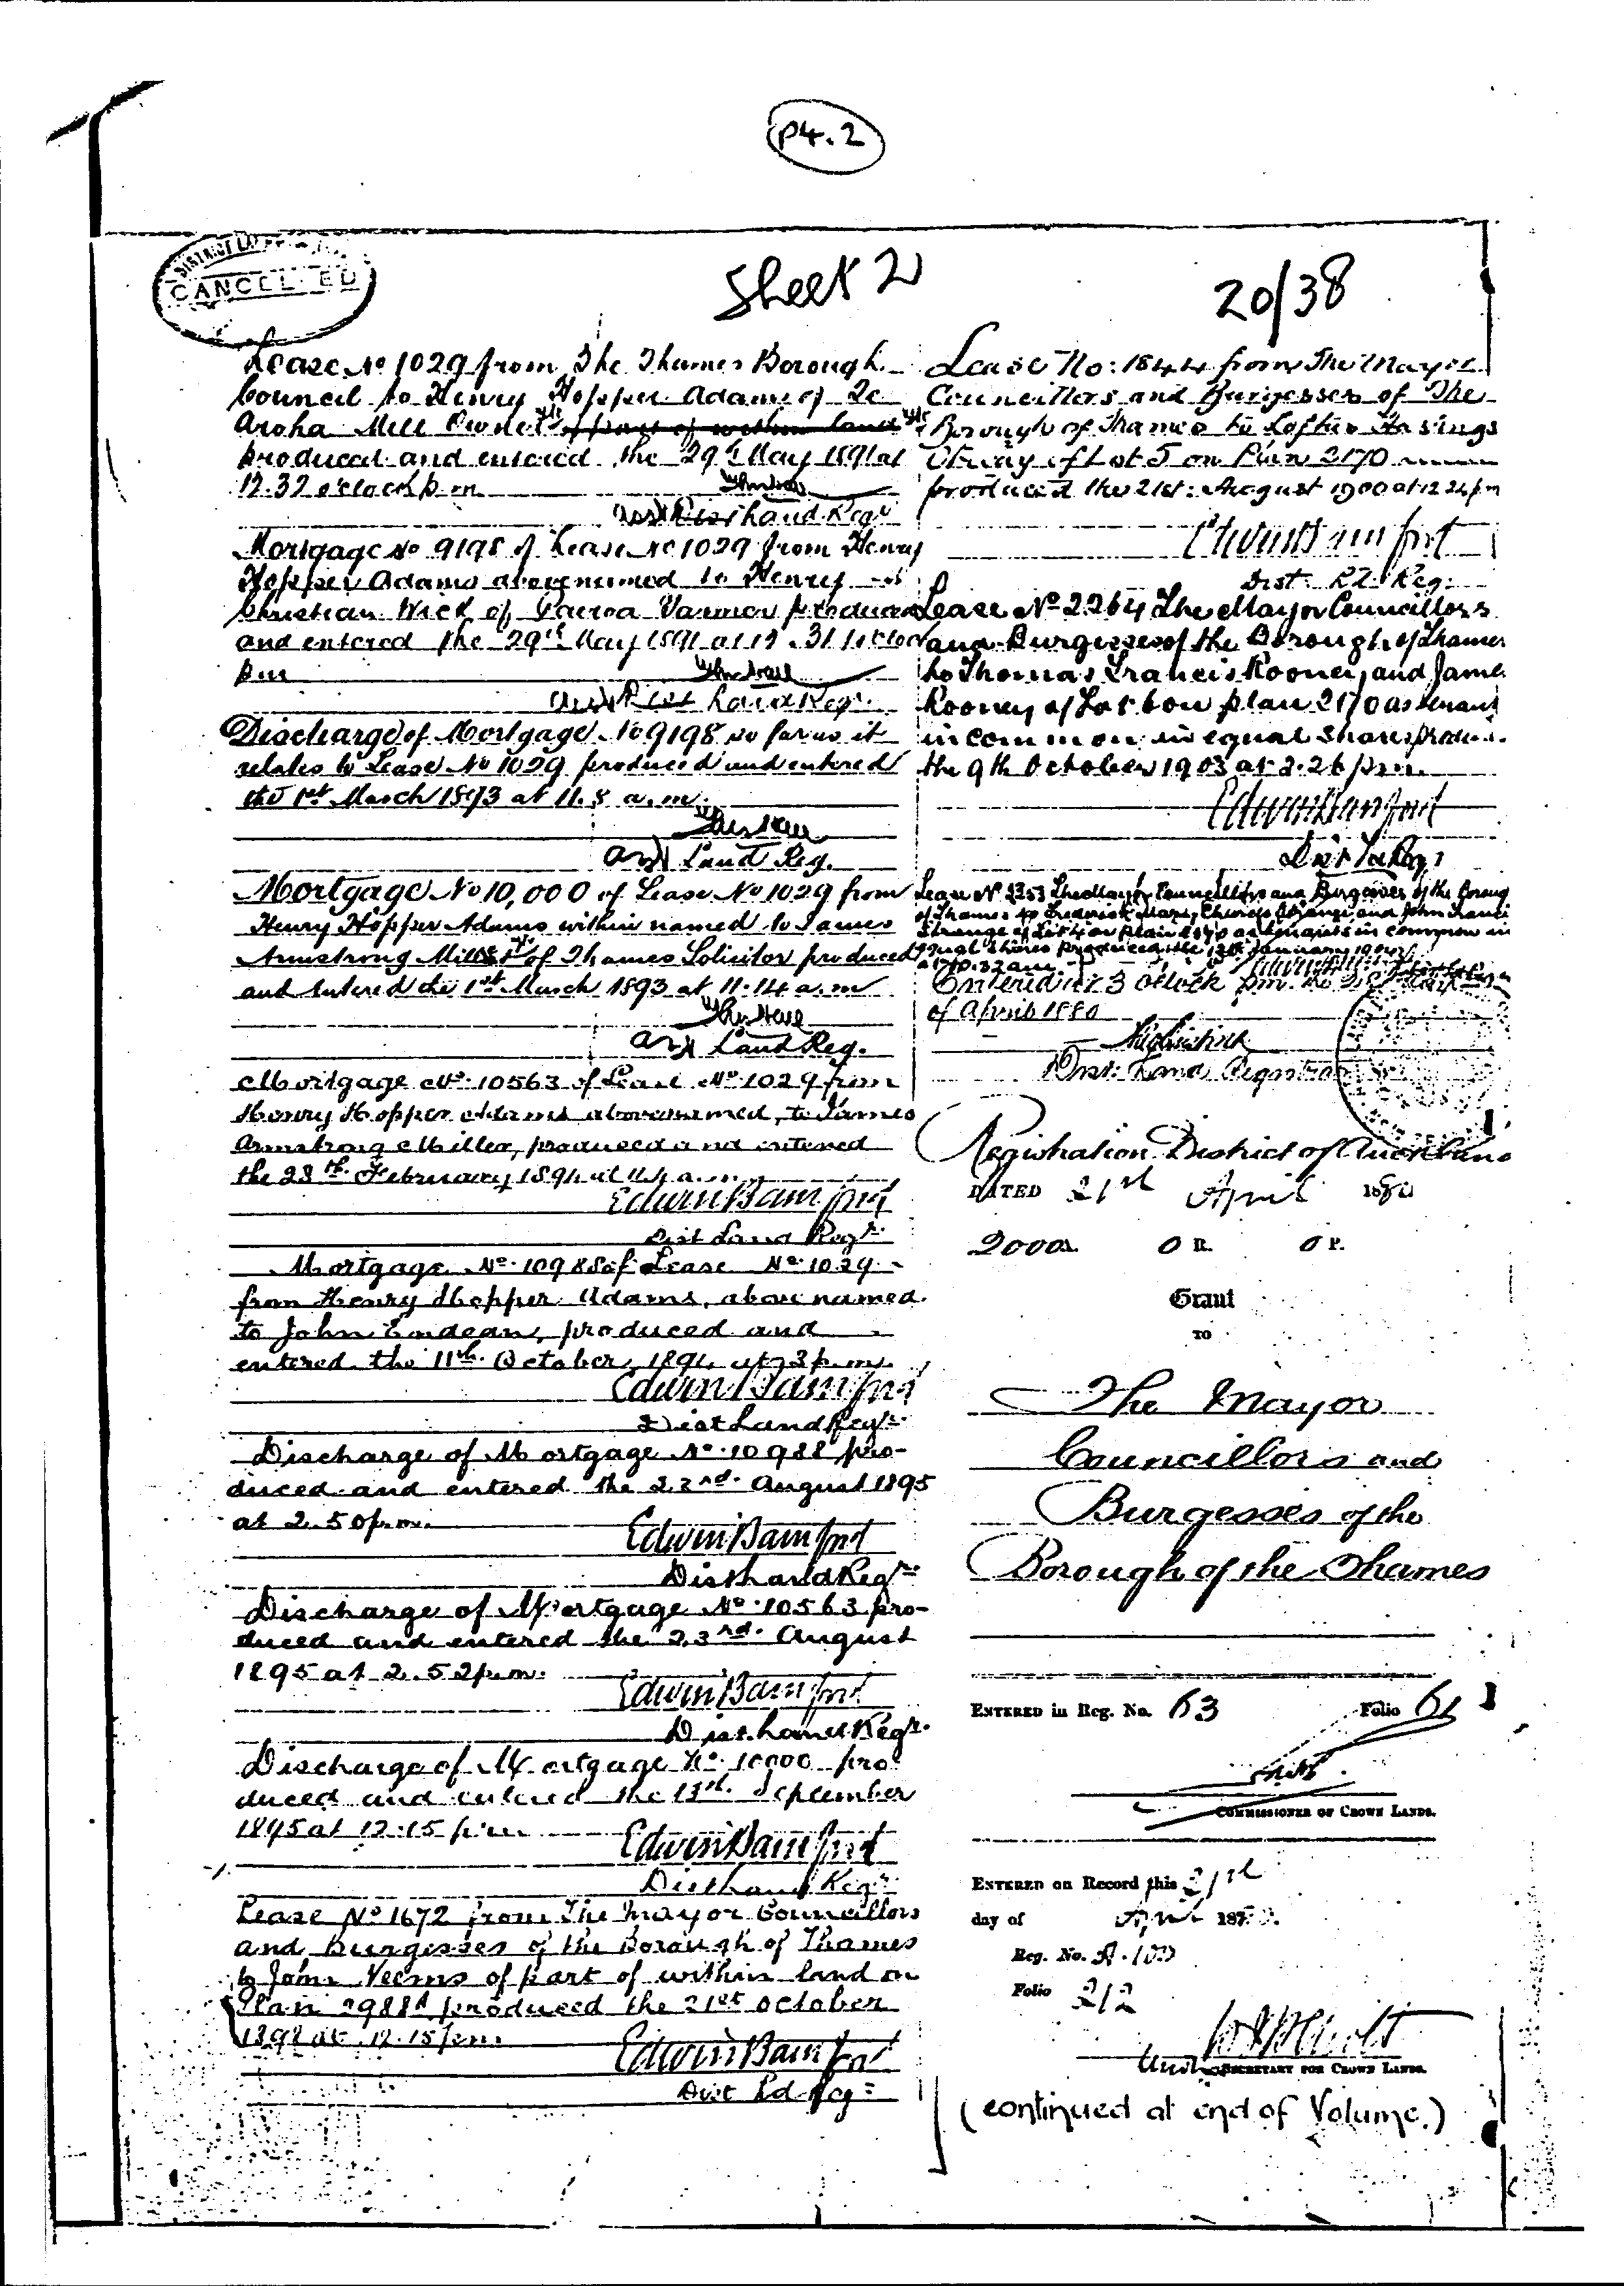 P4.2
CANCELLED
Sheet 2
20/38
Lease No 1029 from The Thames Borough
Council to Henry Hopper Adams of Te
Aroha Mill Owner of part of within land
produced and entered the 29th May 1891 at
12.32 o'clock p.m.
Land Regr
Mortgage No 9198 of Lease No 1029 from Henry
Hopper Adams abovenamed to Henry
Christian Wick of Paeroa produced
and entered the 29th May 1891 at 12.31 o'clock
p.m
Land Regr.
Discharge of Mortgage No 9198 so far as it
relates to Lease No 1029 produced and entered
the 1st March 1893 at 11.8 a.m.
Land Reg.
Mortgage No 10,000 of Lease No 1029 from
Henry Hopper Adams within named to James
Armstrong Miller of Thames Solicitor produced
and entered the 1st March 1893 at 11.14 a.m
Land Reg.
Mortgage No. 10563 of Lease No. 1029 from
Henry Hopper Adams abovenamed, to James
Armstrong Miller, produced and entered
the 28th February 1894 at 11.4 a.m.
Edwin Bamford
Dist Land Regr.
Mortgage No. 10988 of Lease No. 1029
from Henry Hopper Adams, above named
to John Endean, produced and
entered the 11th October, 1894 at 3 p.m.
Edwin Bamford
Dist Land Regr.
Discharge of Mortgage No. 10988 pro-
duced and entered the 23rd August 1895
at 2.50 p.m.
Edwin Bamford
Dist Land Regr.
Discharge of Mortgage No. 10563 pro-
duced and entered the 23rd August
1895 at 2.52 p.m.
Edwin Bamford
Dist. Land Regr.
Discharge of Mortgage No. 10000 pro-
duced and entered the September
1895 at 12.15 p.m
Edwin Bamford
Dist Land Regr.
Lease No 1672 from The Mayor Councillors
and Burgesses of the Borough of Thames
to John Veems of part of within land on
Plan produced the 21st October
1898 at 12.15 p.m.
Edwin Bamford
Dist Ld Reg
Lease No: 1844 from The Mayor
Councillors and Burgesses of The
Borough of Thames to Loftus Hastings
of Lot 5 on Plan 2170
produced the 21st: August 1900 at 12.24 p.m
Edwin Bamford
Dist. Ld. Reg.
Lease No 2264 The Mayor Councillors
and Burgesses of the Borough of Thames
to Thomas Francis Rooney and James
Rooney of Lot 6 on plan 2170 as tenants
in common in equal shares produced
the 9th October 1903 at 2.26 p.m.
Edwin Bamford
Dist Ld Reg
Lease No 2353 The Mayor Councillors and Burgesses of the Borough
of Thames to Frederick Charles Strange and John Francis
Strange of Lot 4 on plan 2170 as tenants in common in
equal shares produced the 13th January
at 10.32 am
Entered at 3 o'clock p.m. the
of April 1880
Dist: Land Registrar
Registration District of Auckland
DATED 21st April 1880
2000 A. 0 R. 0 P.
Grant
TO
The Mayor
Councillors and
Burgesses of the
Borough of the Thames
ENTERED in Reg. No. 63 Folio 61
COMMISSIONER OF CROWN LANDS.
ENTERED on Record this 21st
day of April 18
Reg. No. A. 100
Folio 212
SECRETARY FOR CROWN LANDS.
(continued at end of Volume.)